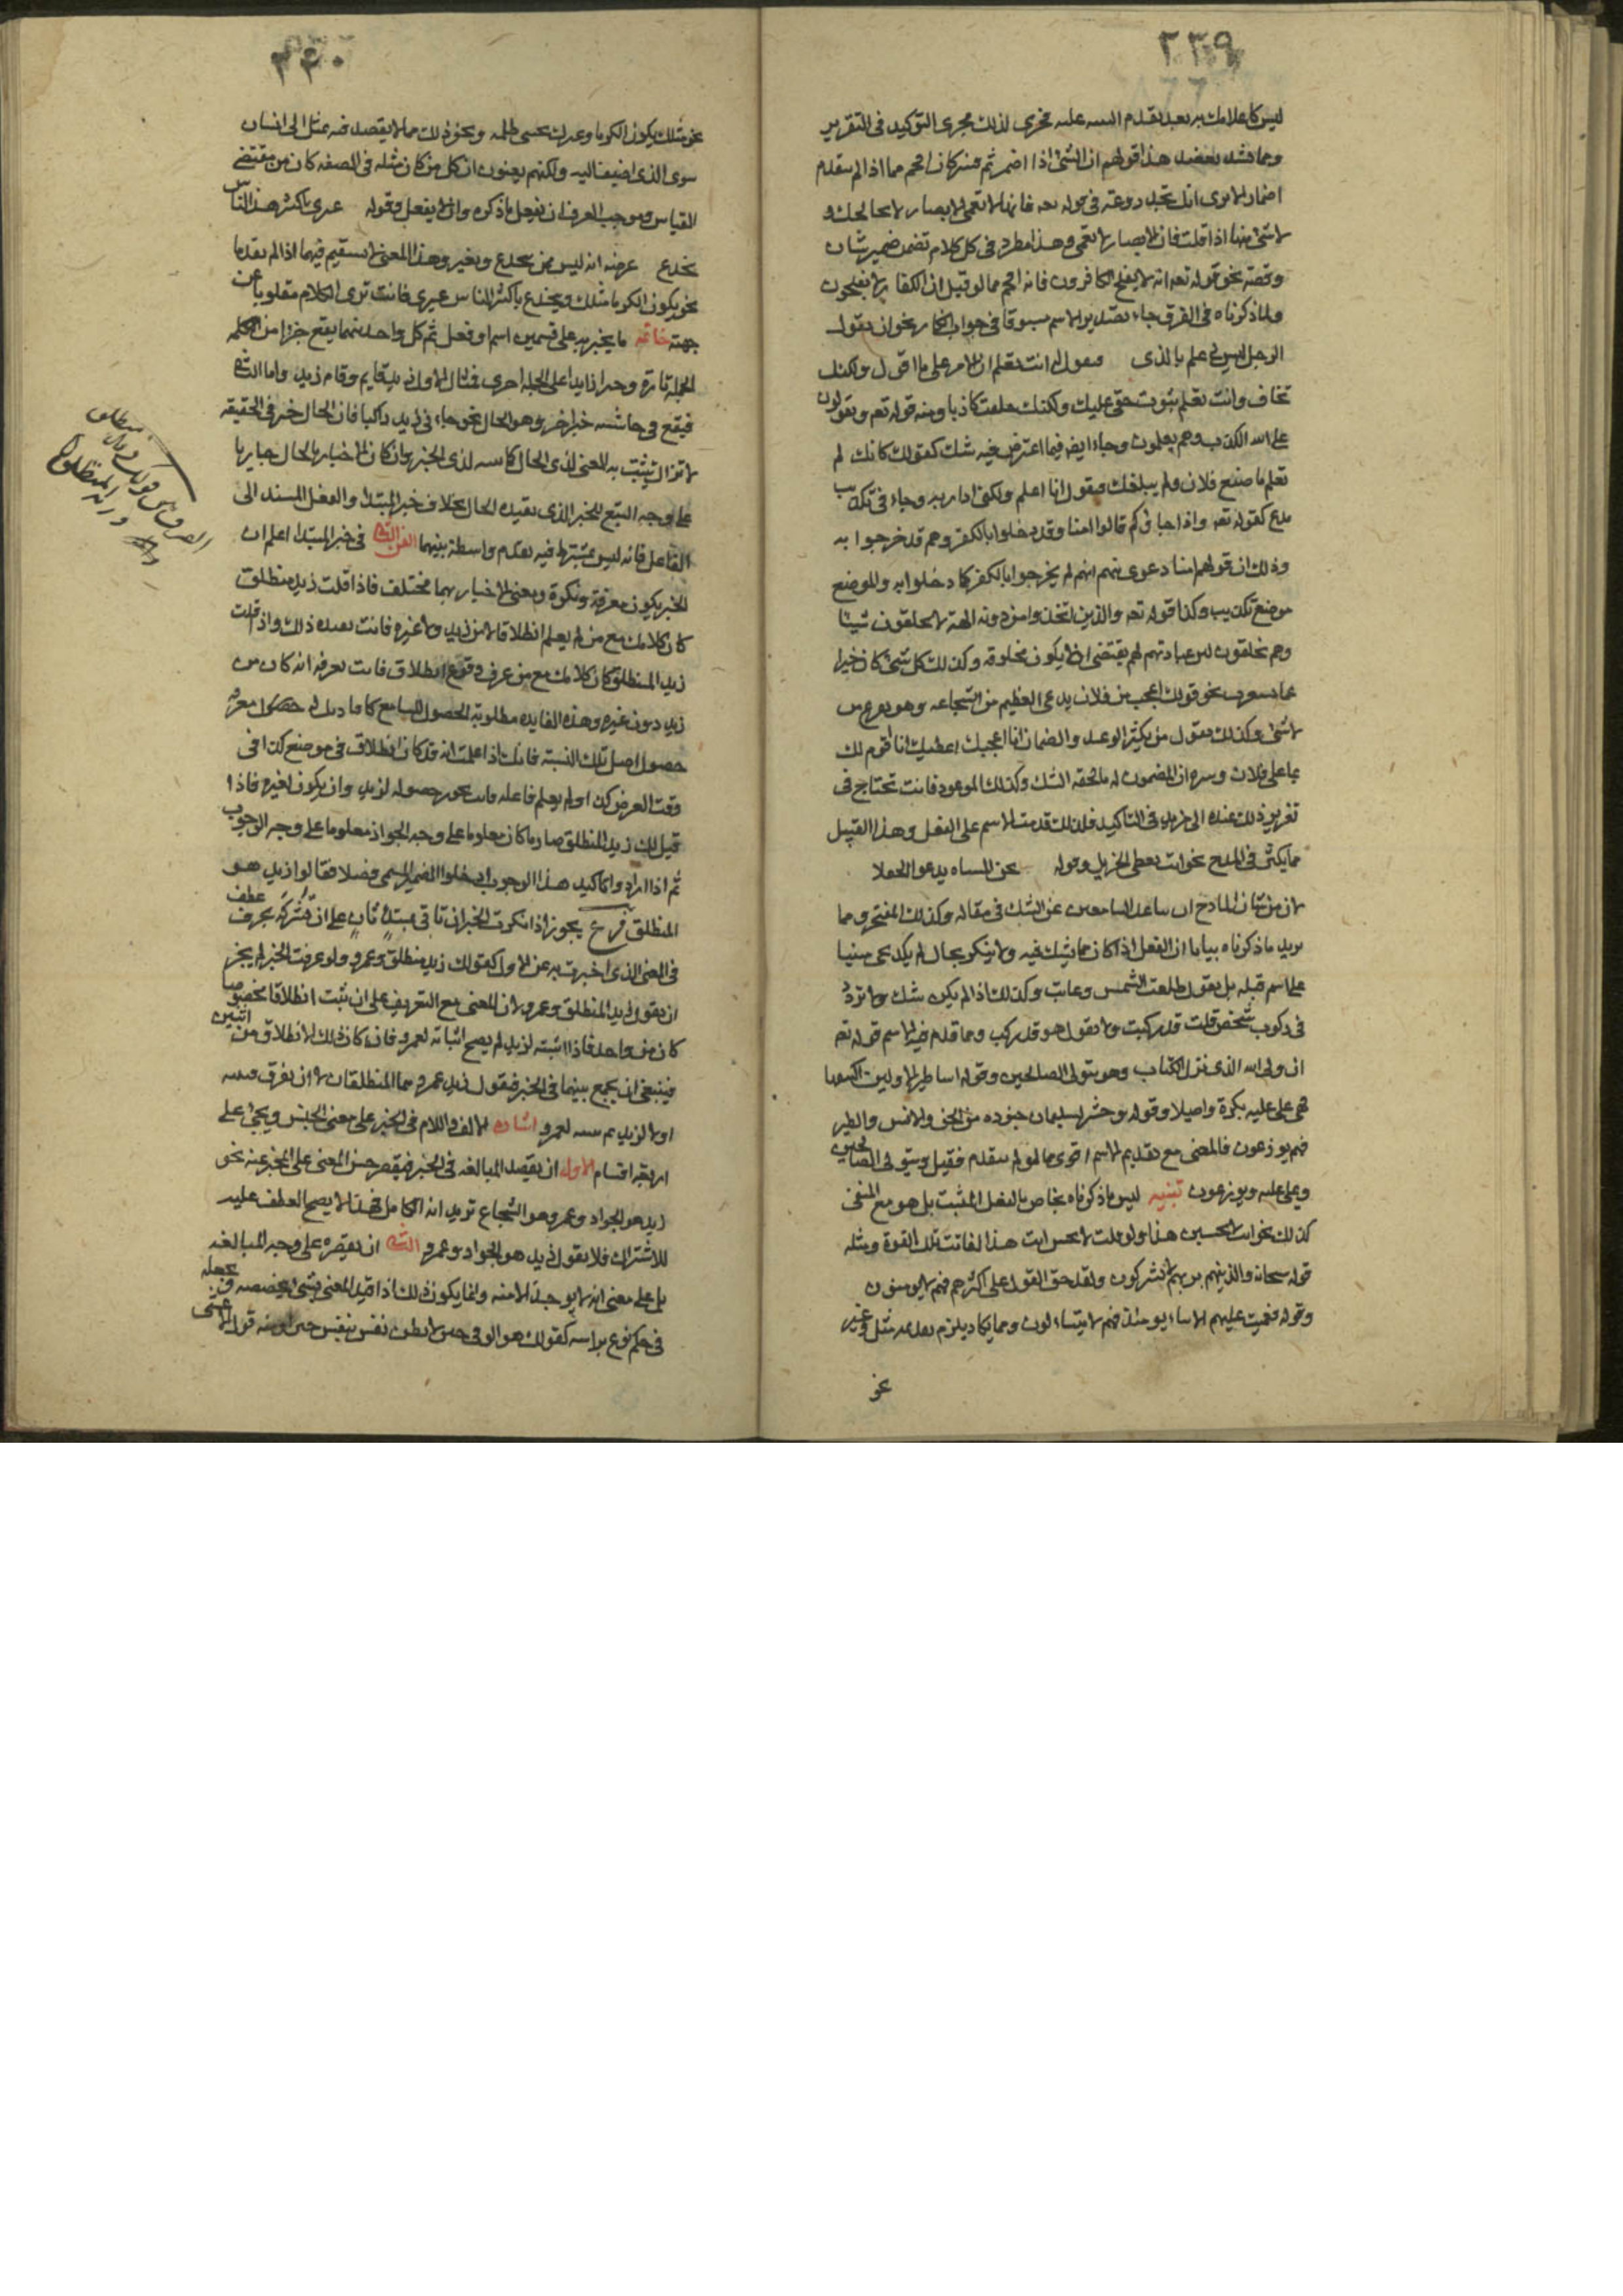 ٢٣٩
ليس كاعلامك به بعد تقدم التنبيه عليه فجرى لذلك مجرى التوكيد فى التقرير
ومما يشد بعضد هذا قولهم ان الشئ اذا اضمر ثم فسر كان افخم مما اذا لم يتقدم
اضمار الا ترى انك تجد روعة فى قوله تعه فانها لا تعمى الابصار
لا تجد منها اذا قلت فان الابصار لا تعمى وهذا مطرد فى كل كلام تضمن ضمير شان
وقصة نحو قوله تعه انه لا يفلح الكافرون فانه افخم مما لو قيل ان الكفار لا يفلحون
ولما ذكرناه فى الفرق جاء تصدير الاسم مسوقا فى جواب انكار نحو ان يقول
الرجل ليس لى علم بالذى تقول انت تعلم ان الامر على ما اقول ولكنك
تخاف وانت تعلم ثبوت حقى عليك ولكنك حلفت كاذبا ومنه قوله تعه ويقولون
على الله الكذب وهم يعلمون وجاء ايضا فيما اعترض فيه شك كقولك كانك لم
تعلم ما صنع فلان ولم يبلغك فيقول انا اعلم ولكنى اداريه وجاء فى تكذيب
مدع كقوله تعه واذا جاؤكم قالوا امنا وقد دخلوا بالكفر وهم قد خرجوا به
وذلك ان قولهم امنا دعوى منهم انهم لم يخرجوا بالكفر كما دخلوا به والموضع
موضع تكذيب وكذا قوله تعه والذين اتخذوا من دونه الهة لا يخلقون شيئا
وهم يخلقون ليس عبادتهم لهم يقتضى ان لا يكون مخلوقه وكذلك كل شئ كان خبرا
نحو قولك اعجب من فلان يدعى العظيم من الشجاعه وهو يفزع من
لا شئ وكذلك يقول من يكثر الوعد والضمان انا اعجبك اعطيك انا اقوم لك
بما على فلان وسره ان المضمون له ما لحقه الشك وكذلك الموعود فانت تحتاج فى
تقرير ذلك عنده الى مزيد فى التاكيد فلذلك قدمت الاسم على الفعل وهذا القبيل
مما يكثر فى المدح نحو انت تعطى الجزيل وقوله نحن فى المشتاة ندعو الجفلا
لان من شان المادح ان يباعد السامعين عن الشك فى مقاله وكذلك المفتخر ومما
يزيد ما ذكرناه بيانا ان الفعل اذا كان مما يشك فيه ولا ينكر بحال لم يكد يجى مبنيا
على اسم قبله بل يقول طلعت الشمس وغابت وكذلك اذا لم يكن شك ولا تردد
فى ركوب شخص قلت قد ركب ولا تقول هو قد ركب ومما قدم فيه الاسم قوله تعه
ان وليى الله الذى نزل الكتاب وهو يتولى الصالحين وقوله اساطير الاولين اكتتبها
فهى تملى عليه بكرة واصيلا وقوله وحشر لسليمان جنوده من الجن والانس والطير
فهم يوزعون فالمعنى مع تقديم الاسم اقوى مما لو لم يتقدم فقيل ويتولى الصالحين
وتملى عليه ويوزعون تنبيه ليس ما ذكرناه بخاص بالفعل المثبت بل هو مع المنفى
كذلك نحو انت لا تحسن هذا ولو قلت لا تحسن انت هذا لفاتت تلك القوة ومثله
قوله سبحانه والذين هم بربهم لا يشركون ولقد حق القول على اكثرهم فهم لا يومنون
وقوله فعميت عليهم الانباء يومئذ فهم لا يتساءلون ومما يكاد يلزم تقديمه مثل وغير
نحو
٣٤٠
نحو مثلك يكون الكرما وغيرك يخشى ظلمه ونحو ذلك مما لا يقصد فيه بمثل الى انسان
سوى الذى اضيف اليه ولكنهم يعنون ان كل من كان مثله فى الصفه كان من مقتضى
القياس وموجب العرف ان يفعل ما ذكره وان لا يفعل وقوله غيرى باكثر هذا الناس
ينخدع غرضه انه ليس ممن ينخدع ويغتر وهذا المعنى لا يستقيم فيهما اذا لم يقدما
نحو يكون الكرما مثلك وينخدع باكثر الناس غيرى فانت ترى الكلام مقلوبا عن
جهته خاتمه ما يخبر به على قسمين اسم او فعل ثم كل واحد منهما يقع جزءا من الكلمه
الجملة تارة وجزءا زايدا على الجملة اخرى فمثال الاول زيد قايم وقام زيد واما الثانى
فيقع خبرا اخر وهو الحال نحو جاءنى زيد راكبا فان الحال خبر فى الحقيقه
لانك تثبت به المعنى لذى الحال كما تثبته لذى الخبر وان كان الاخبار بالحال جاريا
على وجه التبع للخبر الذى تقيده الحال بخلاف خبر المبتدا والفعل المسند الى
الفاعل فانه ليس يشترط فيه تقدم واسطة بينهما الفن الثانى فى خبر المبتدا اعلم ان
الخبر يكون معرفة ونكرة ومعنى الاخبار بهما مختلف فاذا قلت زيد منطلق
كان كلامك مع من لم يعلم انطلاقا لا من زيد ولا غيره فانت تفيده ذلك واذا قلت
زيد المنطلق كان كلامك مع من عرف وقوع انطلاق فانت تعرفه انه كان من
زيد دون غيره وهذه الفايده مطلوبة الحصول للسامع
حصول اصل تلك النسبة فانك اذا علمت انه قد كان انطلاق فى موضع كذا فى
وقت الغرض كذا ولم يعلم فاعله فانت تجوز حصوله لزيد وان يكون لغيره فاذا
قيل لك زيد المنطلق صار ما كان معلوما على وجه الجواز معلوما على وجه الوجوب
ثم اذا ارادوا تاكيد هذا الوجوب ادخلوا الضمير المسمى فصلا فقالوا زيد هو
المنطلق فرع يجوز اذا نكرت الخبر ان تاتى بمبتدا ثان على ان تشركه بحرف عطف
فى المعنى الذى اخبرت به عن الاول كقولك زيد منطلق وعمرو ولو عرفت الخبر لم يجز
ان تقول زيد المنطلق وعمرو لان المعنى مع التعريف على ان تثبت انطلاقا مخصوصا
كان من واحد فاذا اثبته لزيد لم يصح اثباته لعمرو فان كان ذلك الانطلاق من اثنين
فينبغى ان يجمع بينهما فى الخبر فيقول زيد وعمرو هما المنطلقان لا ان يفرق فيثبته
اولا لزيد ثم يثبته لعمرو اشاره الالف واللام فى الخبر على معنى الجنس ويجئ على
اربعة اقسام الاول ان يقصد المبالغه فى الخبر فيقصر جنس المعنى على المخبر عنه نحو
زيد هو الجواد وعمرو هو الشجاع تريد انه الكامل فهذا لا يصح العطف عليه
للاشتراك فلا يقول زيد هو الجواد وعمرو الثانى ان يقصره على وجه المبالغه
بل على معنى انه لا يوجد الا منه وانما يكون ذلك اذا قيد المعنى بشئ يخصصه ويجعله
فى حكم نوع براسه كقولك هو الوفى حين لا تظن نفس بنفس خيرا ومنه قول الاعشى